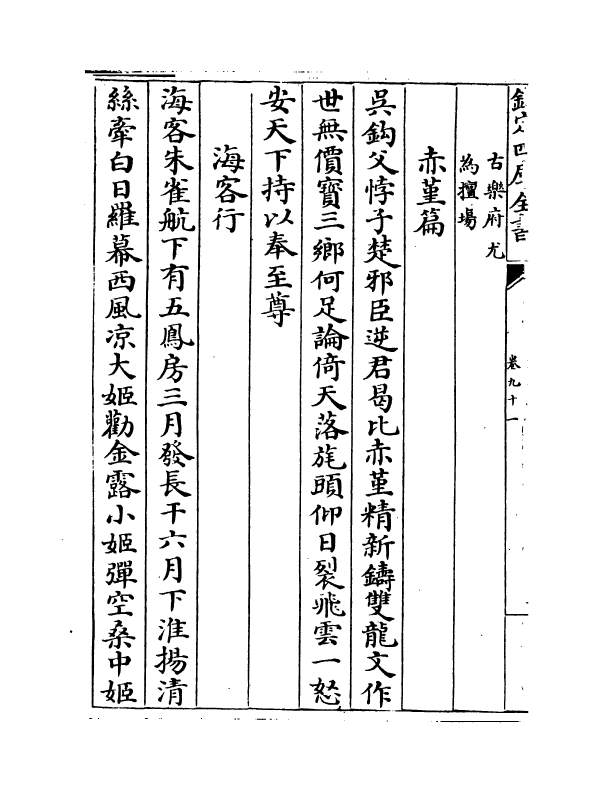 欽定四庫全書
卷九十一
古樂府尤
為擅場
赤堇篇
吳鈎父悖子楚邪臣逆君曷比赤堇精新鑄雙龍文作
世無價寶三鄉何足論倚天落旄頭仰日裂飛雲一怒
安天下持以奉至尊
海客行
海客朱雀航下有五鳳房三月發長干六月下淮揚清
絲牽白日羅幕西風凉大姬勸金露小姬彈空桑中姬